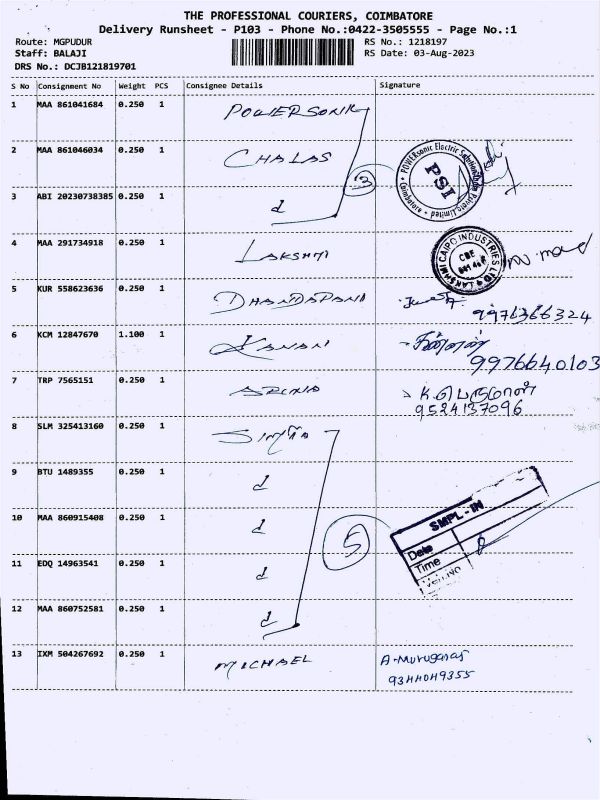 THE PROFESSIONAL COURIERS, COIMBATORE
Delivery Runsheet - P103 - Phone No.:0422-3505555 - Page No.:1
Route: MGPUDUR
RS No.: 1218197
Staff: BALAJI
RS Date: 03-Aug-2023
DRS No.: DCJB121819701
S No Consignment No Weight PCS Consignee Details Signature
1 MAA 861041684 0.250 1 POWERSONIK
2 MAA 861046034 0.250 1 CHALAS
3
POWERsonic Electric Solution India Private Limited
Coimbatore
PSI
3 ABI 20230738385 0.250 1 d
4 MAA 291734918 0.250 1 LAKSHMI
LAKSHMI CAIPO INDUSTRIES LTD
CBE
5 KUR 558623636 0.250 1 DHANDAPANI
9976366324
6 KCM 12847670 1.100 1 KANAN
9976640103
7 TRP 7565151 0.250 1
க.பெருமாள்
9524137096
8 SLM 325413160 0.250 1
9 BTU 1489355 0.250 1 d
10 MAA 860915408 0.250 1 d
5
SMPL-IN
Date
Time
11 EDQ 14963541 0.250 1 d
12 MAA 860752581 0.250 1 d
13 IXM 504267692 0.250 1 MICHAEL
A-Murugaraj
9344049355